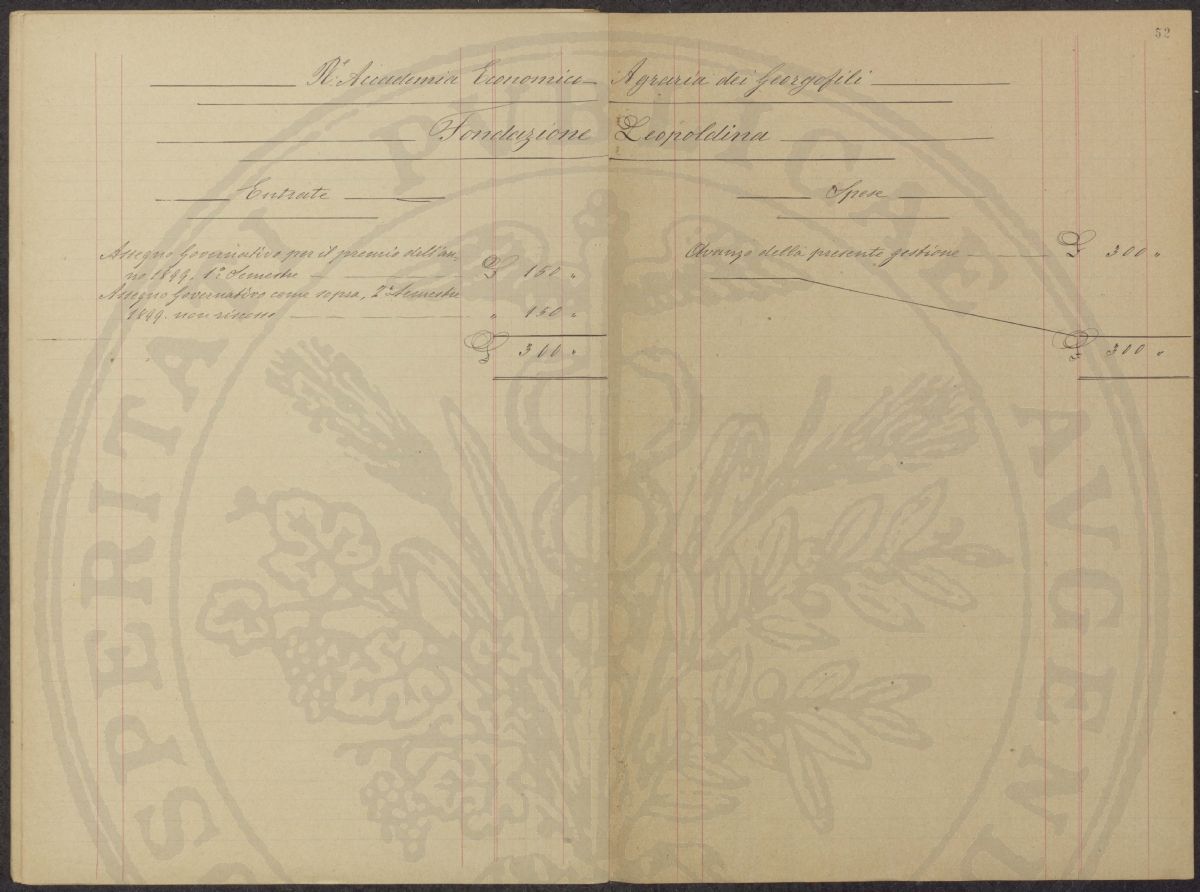 52
R.ª Accademia Economico Agraria dei Georgofili
Fondazione Leopoldina
Entrate
Assegno Governativo per il premio dell'an-
no 1899. 1º Semestre £ 150 "
Assegno Governativo come sopra, 2º Semestre
1899. non riscosso " 150 "
£ 300 "
Spese
Avanzo della presente gestione £ 300 "
£ 300 "
PROSPERITATI PUBLICAE AUGENDAE